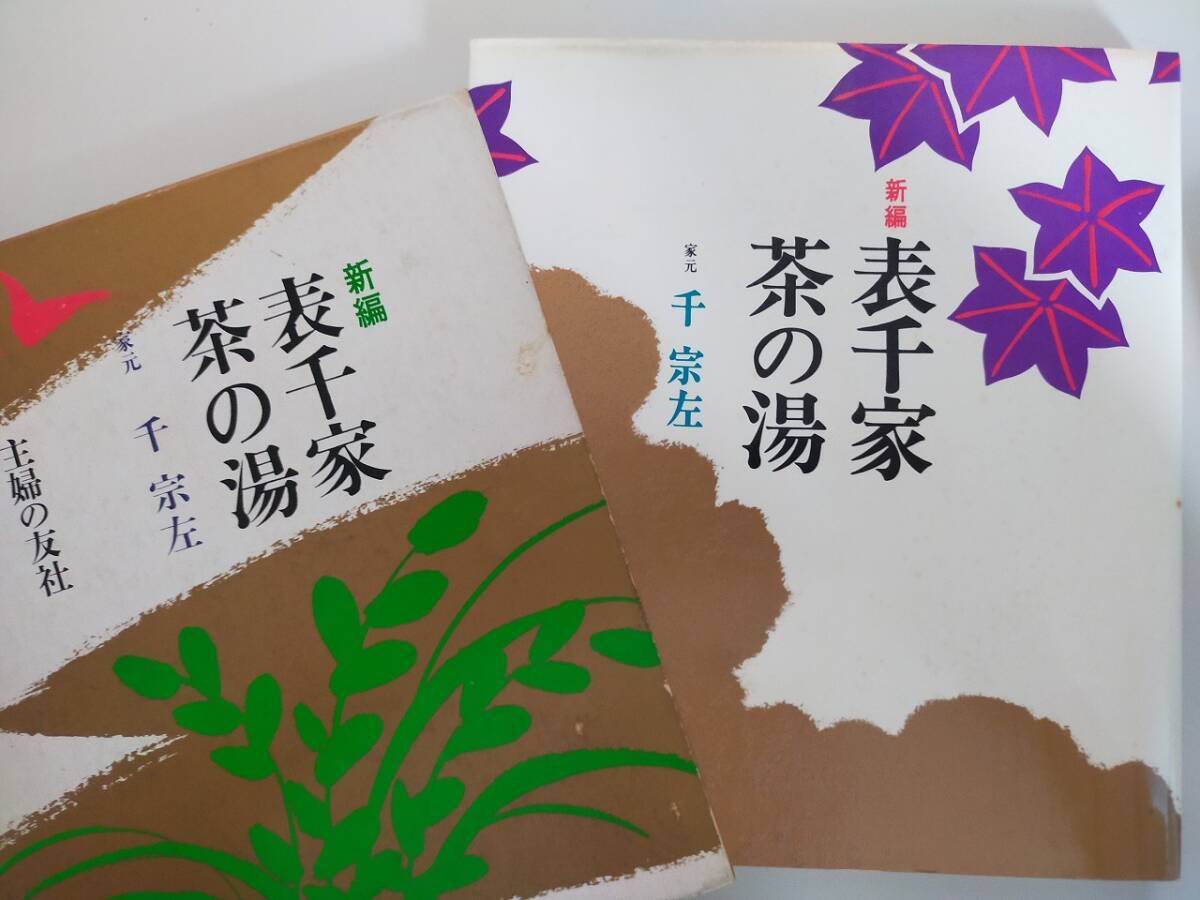 新編
表千家
茶の湯
家元
千 宗左
主婦の友社
新編
表千家
茶の湯
家元
千 宗左